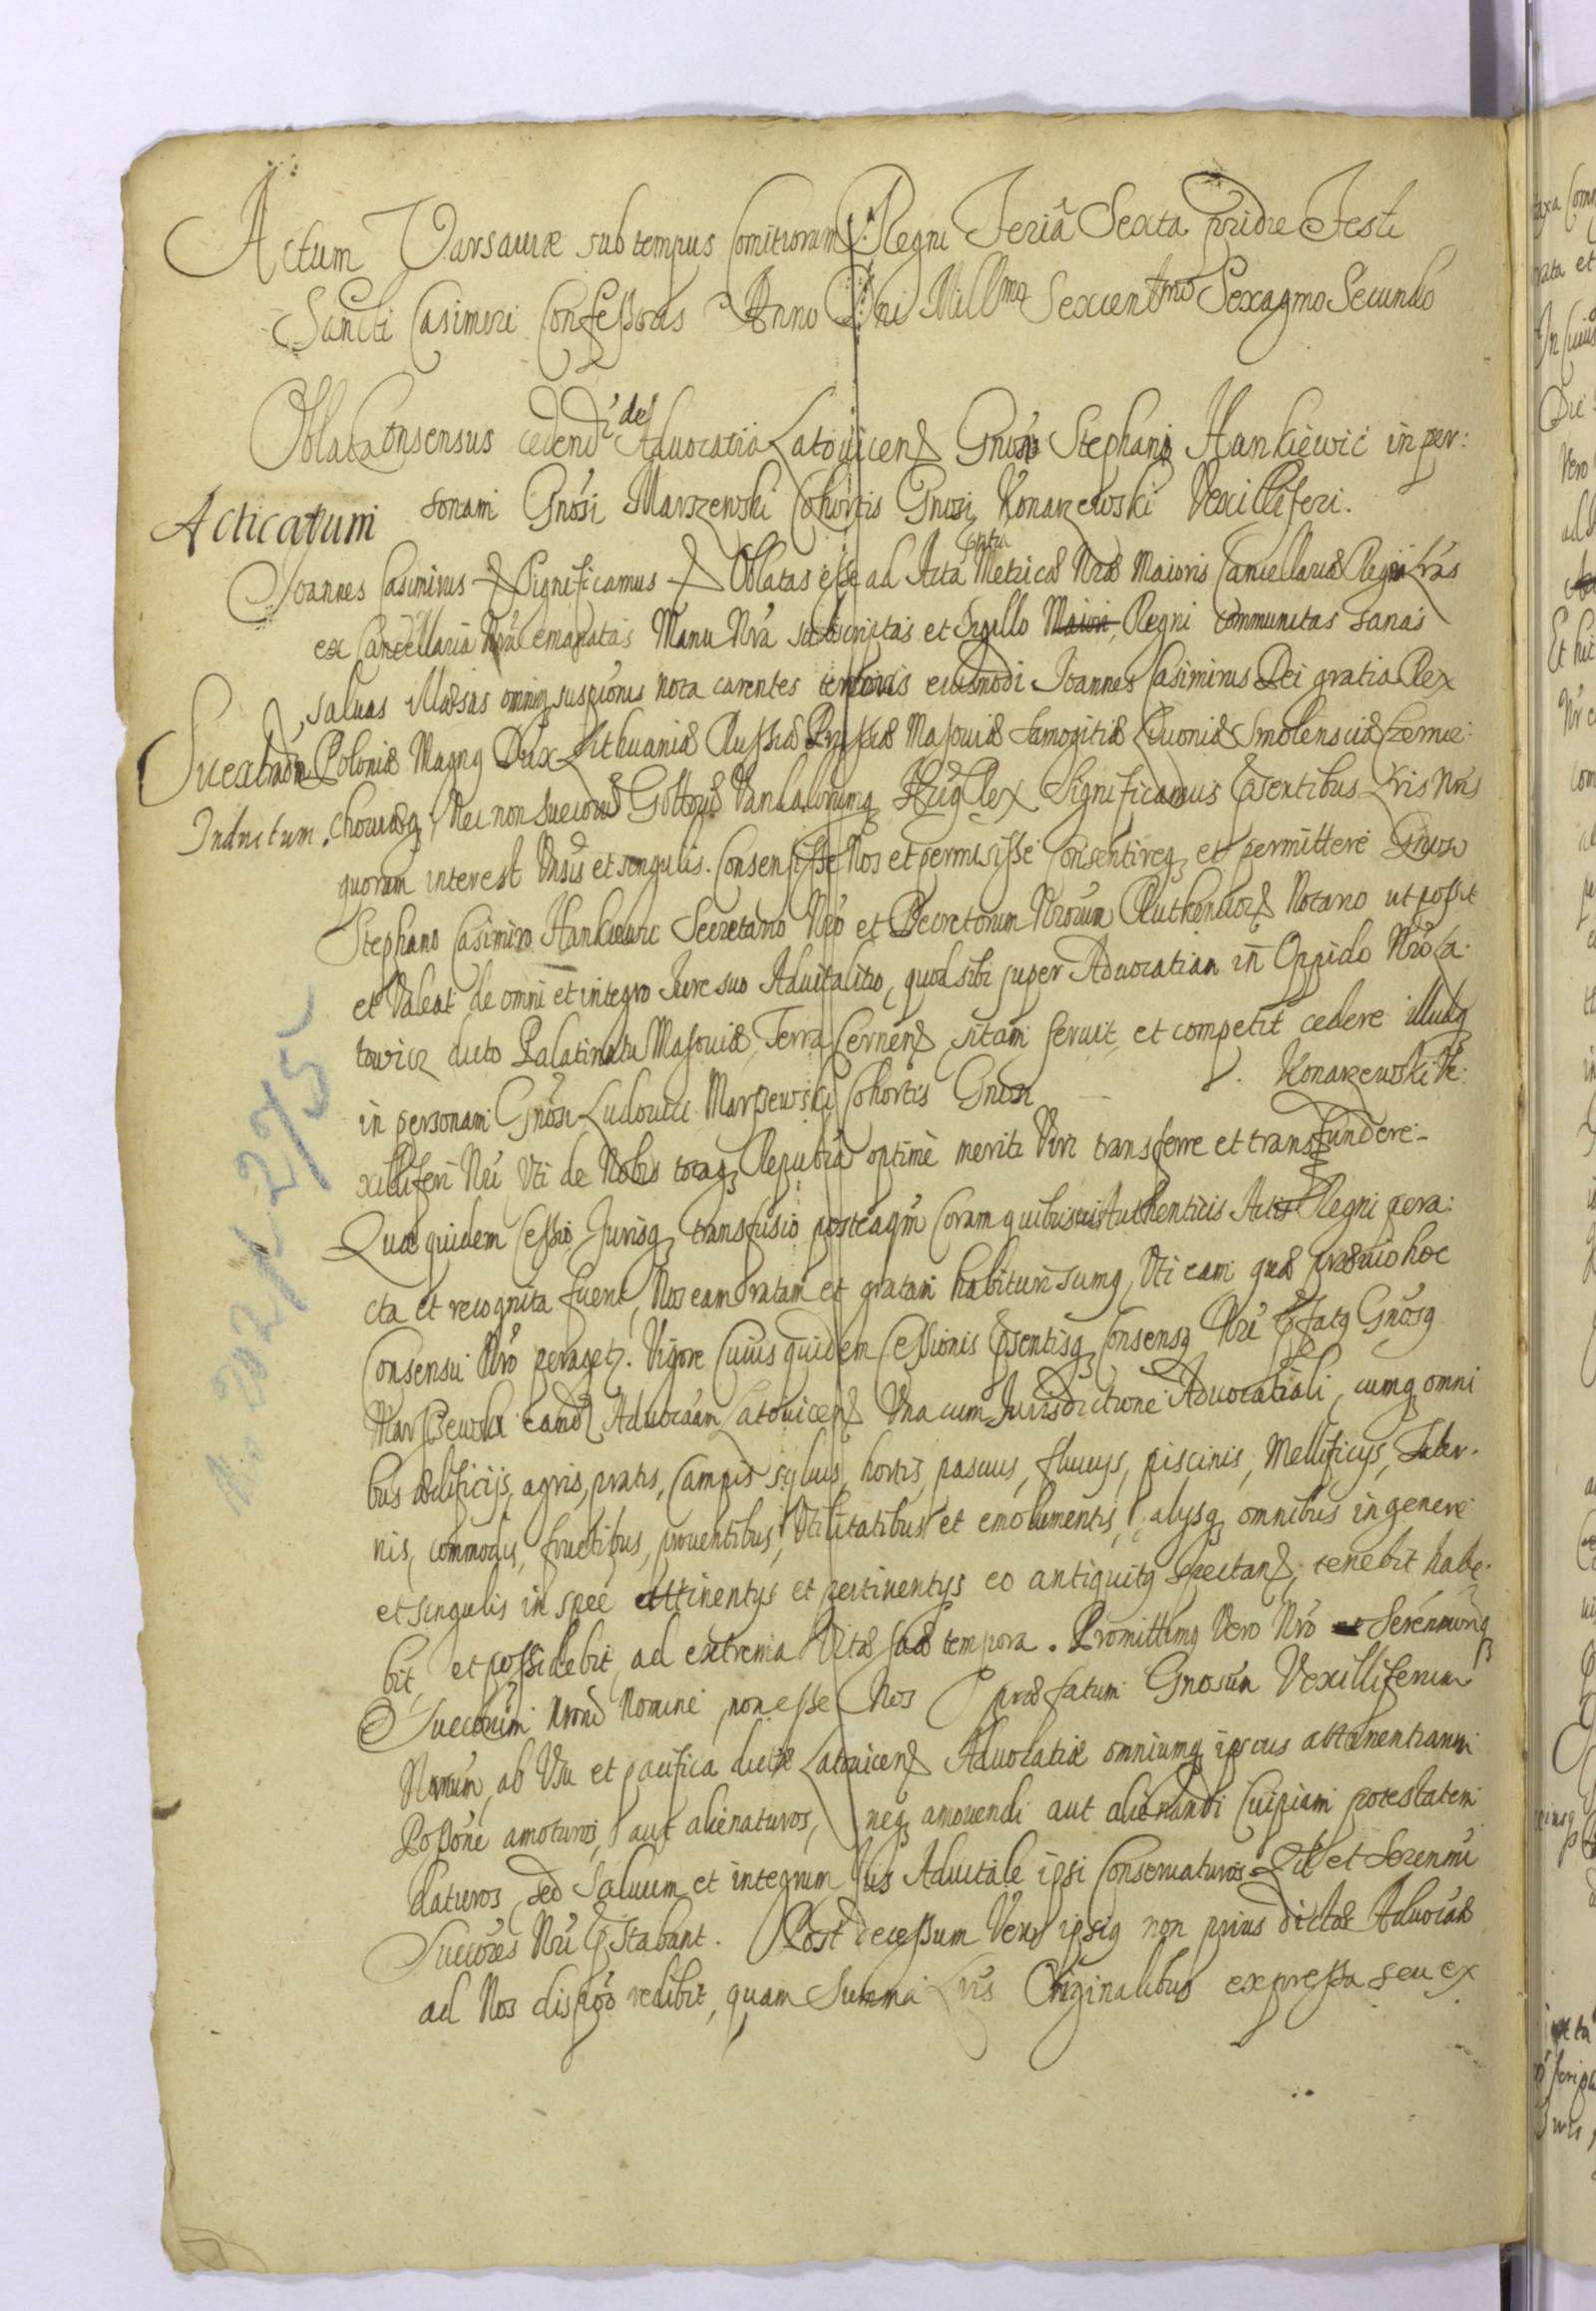 Actum Varsaviæ sub tempus Comitiorum Regni Feriâ Sexta pridie Festi
Sancti Casimiri Confessoris Anno Dni Mill^mo Sexcent^mo Sexagmo Secundo
Oblata Consensus cedendi de Advocatia Latovicen Gnosi Stephani Hankiewic in per:
Acticatum sonam Gnosi Marszewski Cohortis Gnosi Konarzewski Vexilliferi.
Joannes Casimirus & Significamus & Oblatas esse ad Acta Metricæ Nræ Maioris Cancellariæ Regni Lras
ex Cancellaria Nra emanatas Manu Nra subscriptas et Sigillo Maiori Regni communitas sanas
salvas illæsas omniq suspicionis nota carentes tenoris eiusmodi Joannes Casimirus Dei gratia Rex
Poloniæ Magnq Dux Lithuaniæ Russiæ Prussiæ Masoviæ Samogitiæ Livoniæ Smolensciæ Czernie:
Indultum. choviæq, Nec non Suecorum Gottorum Vandalorumq Hæq Rex. Significamus Pæsentibus Lris Nris
quorum interest Vnsis et singulis. Consensisse Nos et permisisse Consentireq et permittere Gnoso
Stephano Casimiro Hankiewic Secretario Nro et Decretorum Nrorum Ruthenicor Notario ut possit
et Valeat de omni et integro Jure suo Advitalitio, quod sibi super Advocatiam in Oppido Nro La:
towicz dicto Palatinatu Masoviæ, Terra Cernen sitam servit et competit cedere illudq
in personam Gnosi Ludovici Marszewski Cohortis Gnosi Konarzewski Ve:
xilliferi Nri Vti de Nobis totaq Republica optime meriti Viri transferre et transfundere.
Quæ quidem Cessio Jurisq transfusio posteaqm Coram quibusvis Authenticis Actis Regni pera:
cta et recognita fuerit, Nos eam ratam et gratam habituri sumq, Vti eam quæ prævio hoc
Consensu Nro peraget. Vigore Cuius quidem Cessionis Psentisq Consensq Nri Pfatq Gnosq
Marszewski eand Advocaam Latovicen Vna cum Jurisdictione Advocatiali, cumq omni
bus ædificijs, agris, pratis, Campis sylvis, hortis, pascuis, fluvijs, piscinis, Mellificijs, Taber-
nis, commodis, fructibus, proventibus, Vtilitatibus et emolumentis, alijsq omnibus in genere
et singulis in spee attinentijs et pertinentijs eo antiquitq spectan, tenebit habe-
bit, et possidebit ad extrema Vitæ suæ tempora. Promittimq Vero Nro et Serenmorq
Succorum Nrord Nomine, non esse Nos præfatum Gnosum Vexilliferum
Nrum, ab Vsu et pacifica dictæ Latovicen Advocatiæ omniumq ipsius attinentiarum
Possone amoturos, aut alienaturos, neq amovendi aut alienandi Cuipiam potestatem
daturos, sed Salvum et integrum Jus Advitale ipsi Conservaturos. Qd et Serenmi
Succores Nri Pstabunt. Post decessum Vero ipsiq non prius dictæ Advocaæ
ad Nos disposo redibit, quam Summa Lris Originalibus expressa seu ex